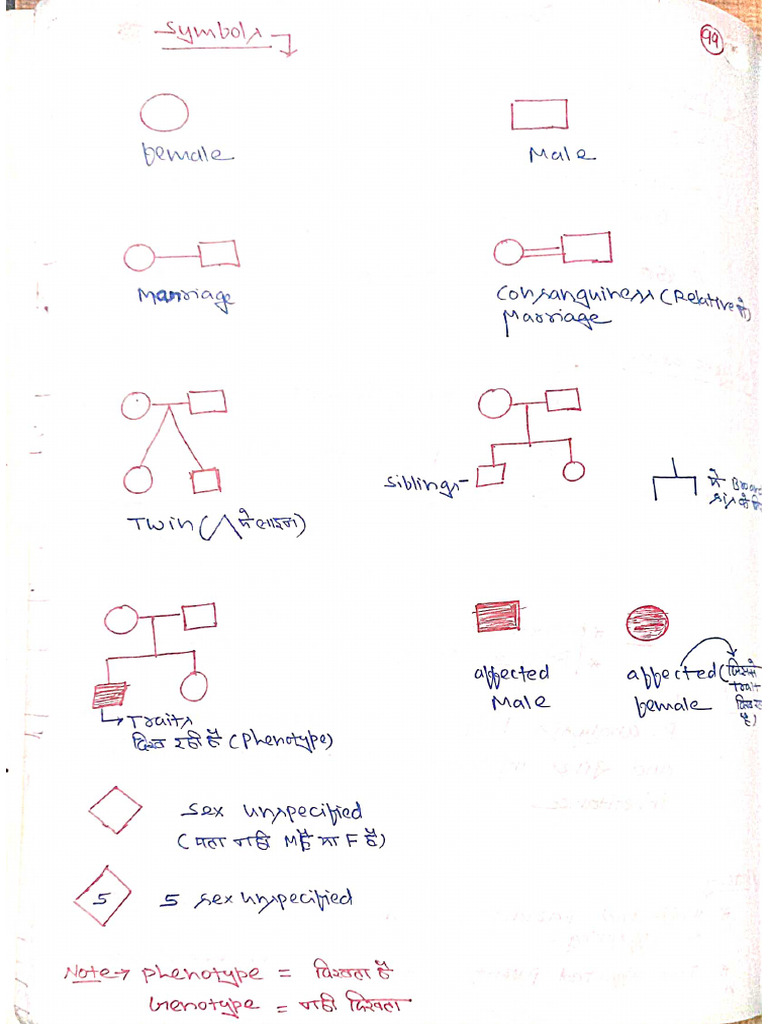 Symbols
99
Female
Male
Marriage
Consanguiness (Relative में)
Marriage
Siblings-
में
Twin ( में लाइन)
affected
Male
affected (जिसमें
Trait
है)
Female
Traits
दिख रही है (Phenotype)
Sex unspecified
(पता नही M है या F है)
5
5 sex unspecified
Note → Phenotype = दिखता है
Genotype = नही दिखता